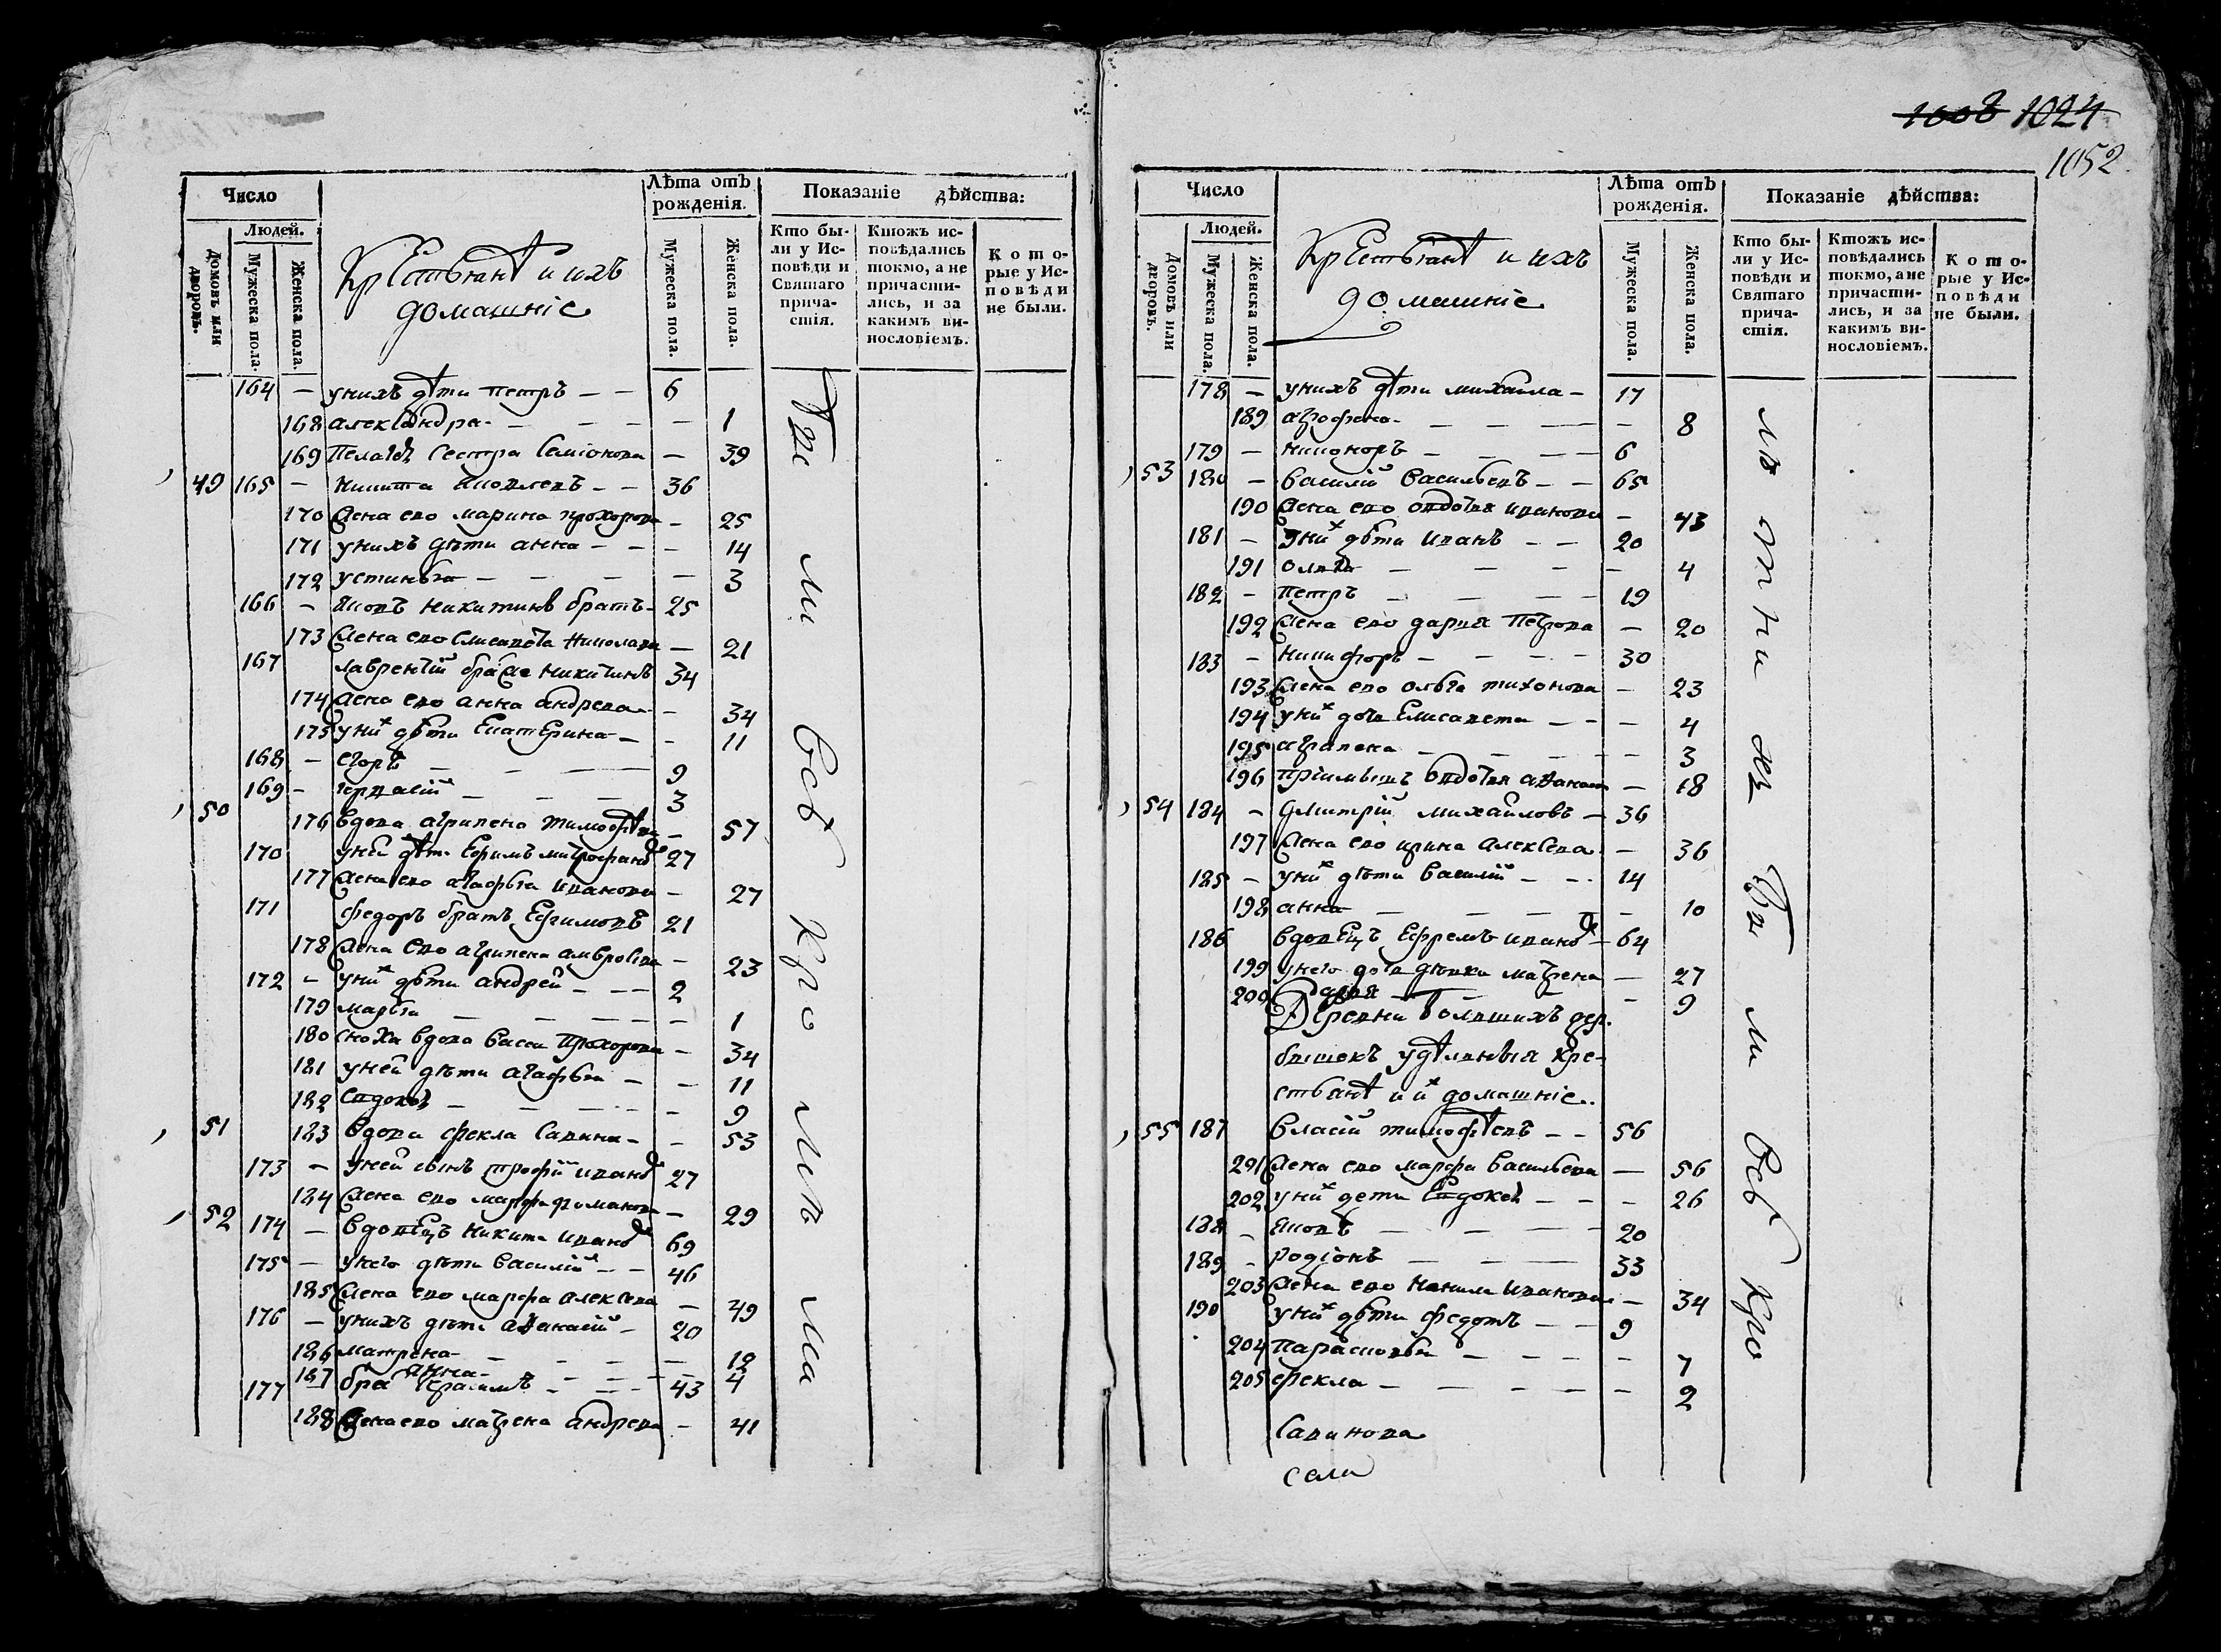 1008 1024
1052
Число
Людей.
Домовъ или дворовъ.
Мужеска пола.
Женска пола.
Крестьянѣ и ихъ
домашніе
Лѣта отъ рожденія.
Мужеска пола.
Женска пола.
Показаніе дѣйства:
Кто бы-
ли у Ис-
повѣди и
Святаго
прича-
стія.
Ктожъ ис-
повѣдались
токмо, а не
причасти-
лись, и за
какимъ ви-
нословіемъ.
Кото-
рые у Ис-
повѣди
не были.
164 — унихъ дѣти Петръ — — 6
168 александра — — — 1
169 Пелагѣя Сестра Семіонова — 39
49 165 — Никита Яковлевъ — — 36
170 Жена ево марина прохорова — 25
171 унихъ дѣти анна — — — 14
172 устинья — — — — 3
166 — Яковъ никитинъ братъ — 25
173 Жена ево Елисавета Николаева — 21
167 лаврентій братже никитинъ 34
174 Жена ево анна андреева — 34
175 уних дѣти Екатерина — — 11
168 — егоръ — — — 9
169 — гервасій — — — 3
50 176 вдова агрипена тимофѣева — 57
170 уней дѣти Ефимъ митрофановъ 27
177 Жена ево агафья иванова — 27
171 федоръ братъ Ефимовъ 21
178 Жена Ево агрипена амвросева — 23
172 — уних дѣти андрей — — — 2
179 марья — — — — — 1
180 сноха вдова васса Прохорова — 34
181 уней дѣти агафья — — 11
182 Евдокѣя — — — — 9
51 183 вдова фекла Савина — — 53
173 — уней сынъ трофій ивановъ 27
184 Жена ево марфа романова — 29
52 174 — вдовецъ Никита ивановъ 69
175 — унего дѣти Василій — — 46
185 Жена ево марфа алексеева — 49
176 — унихъ дѣти аѳанасій — 20
186 матрена — — — — 12
187 анна — — — — 4
177 — бра герасимъ — — — 43
188 Жена ево матрена андреева — 41
Вс
ли
всѣ
Кро
мѣ
ма
Число
Людей.
Домовъ или дворовъ.
Мужеска пола.
Женска пола.
Крестьянѣ и ихъ
домашніе
Лѣта отъ рожденія.
Мужеска пола.
Женска пола.
Показаніе дѣйства:
Кто бы-
ли у Ис-
повѣди и
Святаго
прича-
стія.
Ктожъ ис-
повѣдались
токмо, а не
причасти-
лись, и за
какимъ ви-
нословіемъ.
Кото-
рые у Ис-
повѣди
не были.
178 — унихъ дѣти михаила — 17
189 агрофена — — — — — 8
179 — никоноръ — — — — 6
53 180 — василій Васильевъ — — 65
190 Жена ево овдотья иванова — 43
181 — Уних дѣти иванъ — — 20
191 олга — — — — — 4
182 — Петръ — — — — 19
192 Жена ево дарья Петрова — 20
183 — никифоръ — — — — 30
193 Жена ево ольга тихонова — 23
194 уних дочь Елисавета — — — 4
195 аграпена — — — — 3
196 пріимышъ овдотья — 18
54 184 — Дмитрій михайловъ — 36
197 Жена ево ирина алексеева — 36
185 — уних дѣти василій — — 14
198 анна — — — — — 10
186 вдовецъ Ефремъ ивановъ — 64
199 унего дочь дѣвка матрена — 27
200 дарья — — — — 9
Деревни болшихъ дер-
бышекъ удѣлныя кре-
стьянѣ и их домашніе.
55 187 Власій тимофѣевъ — — 56
201 Жена ево марфа васильева — 56
202 уних дети Евдокѣя — — — 26
188 — яковъ — — — — 20
189 — родіонъ — — — — 33
203 Жена ево ненила иванова — 34
190 уних дѣти федотъ — — 9
204 Парасковья — — — — 7
205 фекла — — — — — 2
Савинова
села
лѣ
тни
хъ
ли
всѣ
Кро